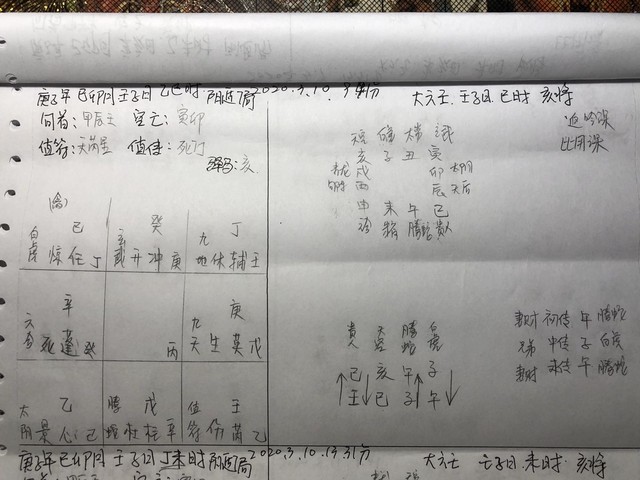 庚子年 己卯月 壬子日 乙巳时 阴遁7局 2020.3.10.
旬首:甲辰壬 空亡:寅卯
值符:天芮星 值使:死门
驿马:亥
己 癸 丁
白虎 惊 任 丁 玄武 开 冲 庚 九地 休 辅 壬
辛 庚
六合 死 蓬 癸 丙 九天 生 英 戊
乙 戊 壬
太阴 景 心 己 腾蛇 杜 柱 辛 值符 伤 芮 乙
大六壬. 壬子日. 巳时 亥将
返吟课
比用课
亥 子 丑 寅
戌 卯
酉 辰 天后
申 未 午 巳
腾蛇 贵人
贵人 天空 腾蛇 白虎
巳 亥 午 子
壬 巳 子 午
妻财 初传 午 腾蛇
兄弟 中传 子 白虎
妻财 末传 午 腾蛇
庚子年 己卯月 壬子日 丁未时 阴遁7局 2020.3.10.13.31分
大六壬 壬子日. 未时. 亥将